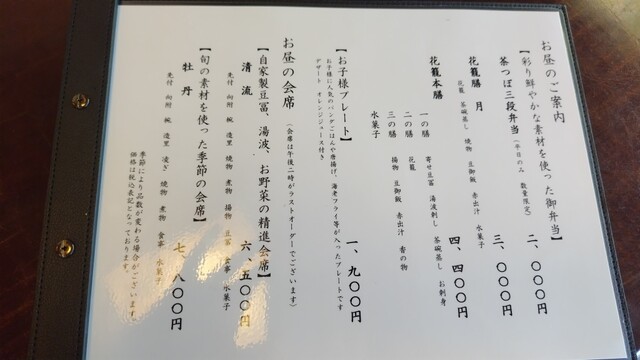 お昼のご案内
【彩り鮮やかな素材を使った御弁当】
茶つぼ三段弁当(平日のみ 数量限定) 二、〇〇〇円
花籠膳 月 三、〇〇〇円
花籠 茶碗蒸し 焼物 豆御飯 赤出汁 水菓子
花籠本膳 四、四〇〇円
一の膳 寄せ豆冨 湯波刺し 茶碗蒸し お刺身
二の膳 花籠
三の膳 揚物 豆御飯 赤出汁 香の物
水菓子
【お子様プレート】 一、九〇〇円
お子様に人気のパンダごはんや唐揚げ、海老フライ等が入ったプレートです
デザート オレンジジュース付き
お昼の会席 (会席は午後二時がラストオーダーでございます)
【自家製豆冨、湯波、お野菜の精進会席】
清流 六、五〇〇円
先付 向附 椀 造里 焼物 煮物 揚物 豆冨 食事 水菓子
【旬の素材を使った季節の会席】
牡丹 七、八〇〇円
先付 向附 椀 造里 凌ぎ 焼物 煮物 食事 水菓子
季節により品数が変わる場合がございます。
価格は税込表記となっております。